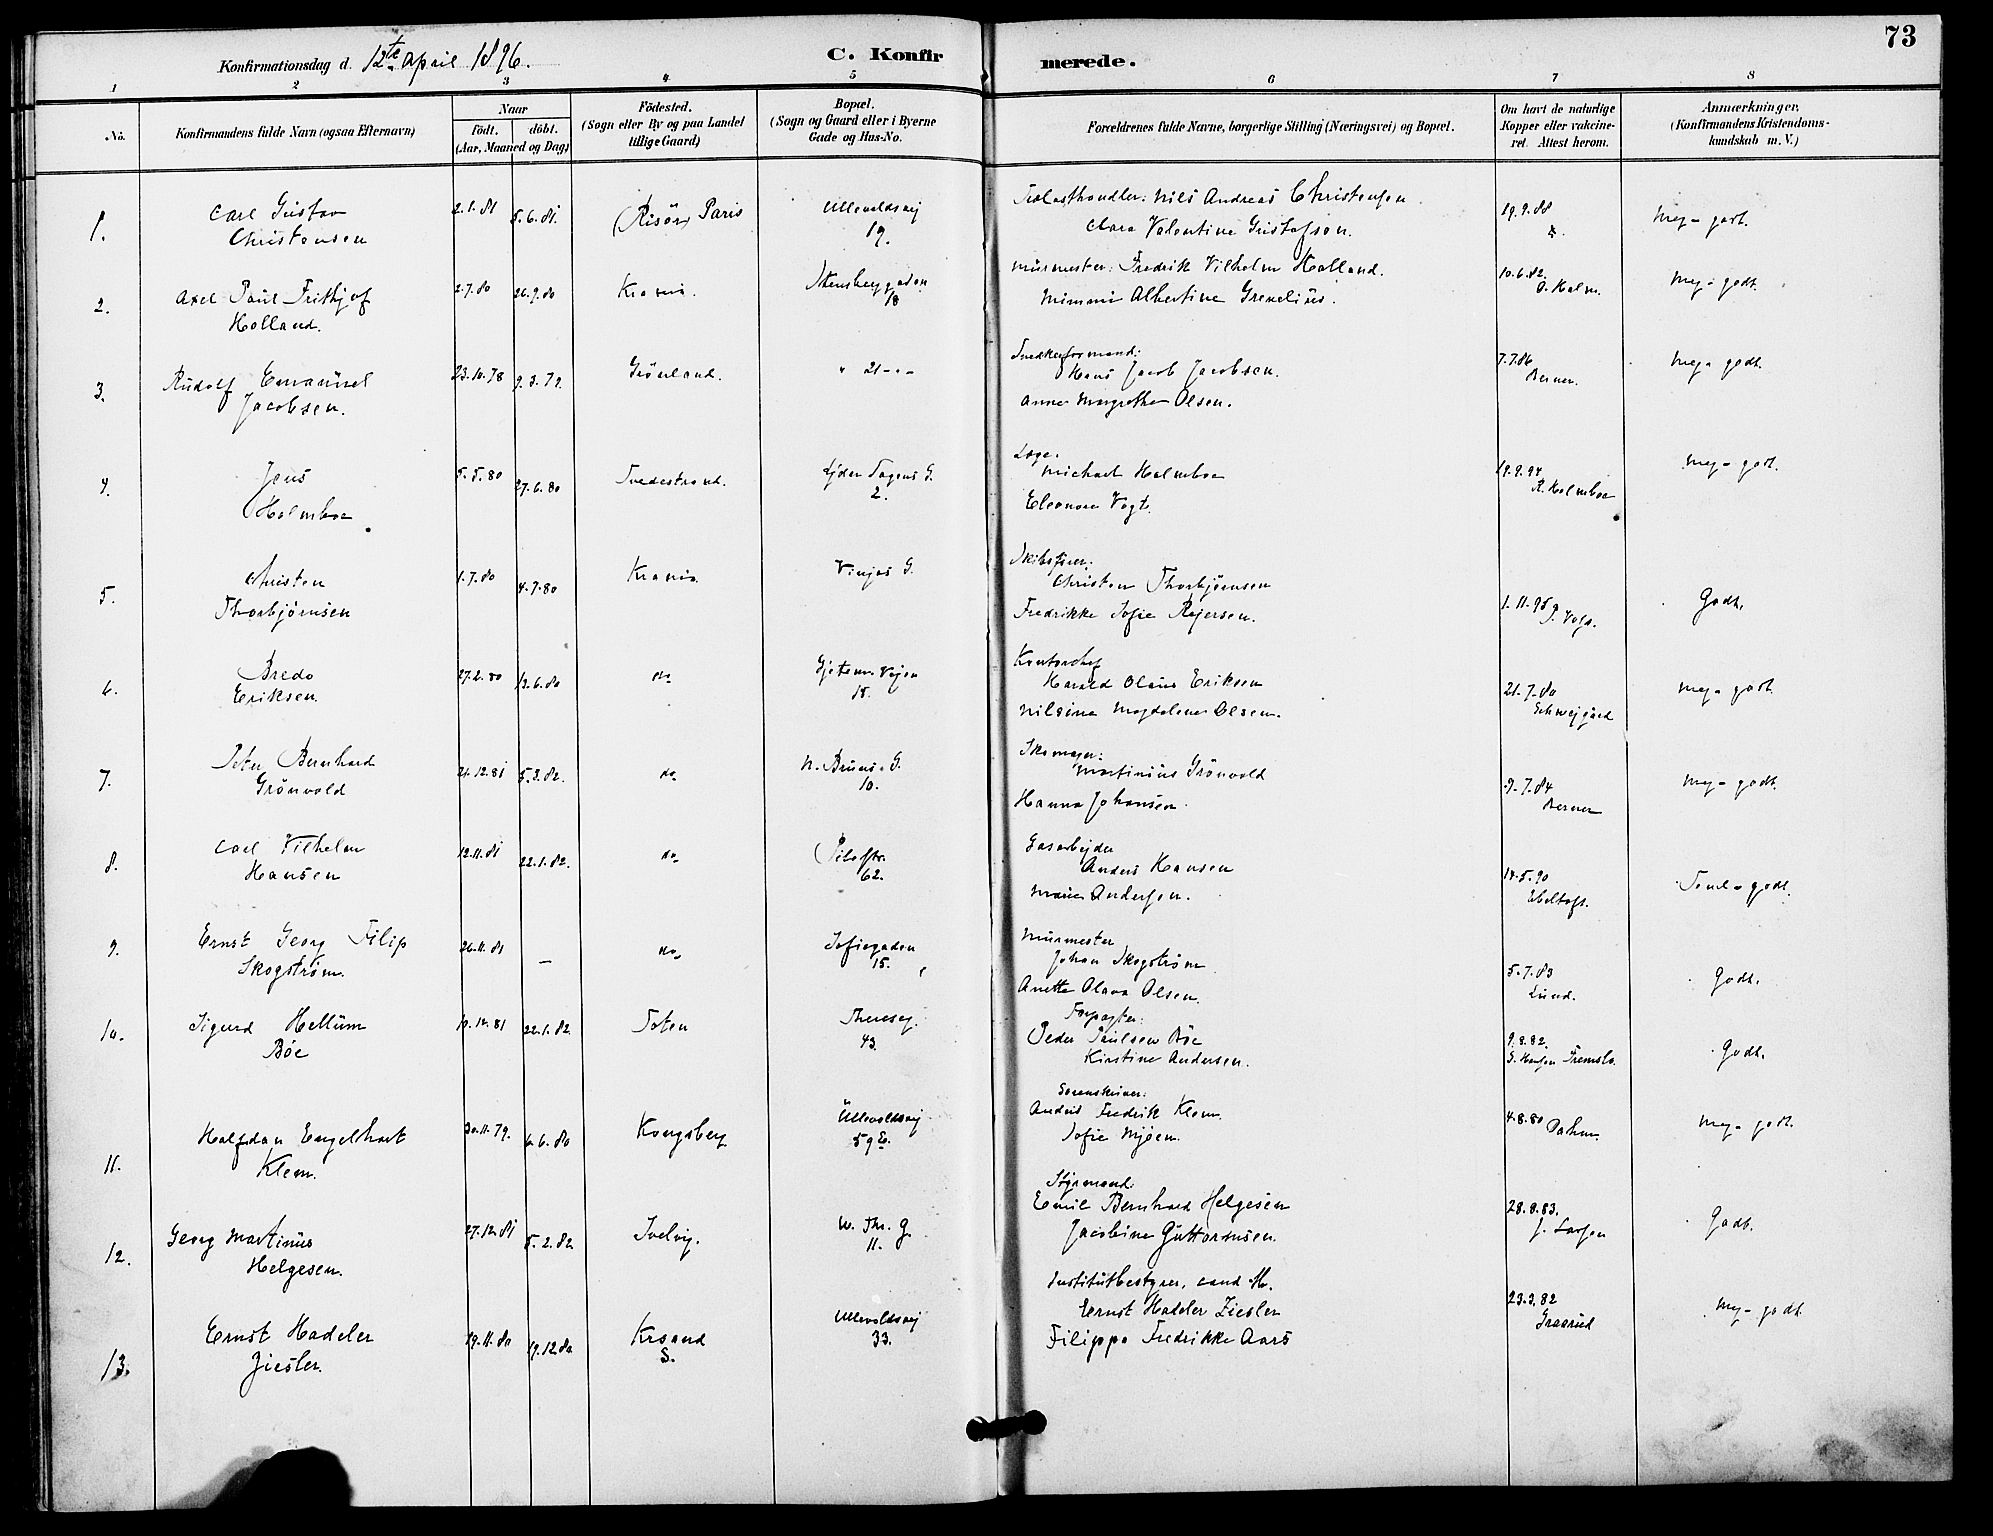 73
Konfirmationsdag d. 12te April 1896.
C. Konfirmerede.
1 2 3 4 5 6 7 8
No.
Konfirmandens fulde Navn (ogsaa Efternavn)
Naar
født. døbt.
(Aar, Maaned og Dag)
Fødested.
(Sogn eller By og paa Landet
tillige Gaard)
Bopæl.
(Sogn og Gaard eller i Byerne
Gade og Hus-No.
Forældrenes fulde Navne, borgerlige Stilling (Næringsvei) og Bopæl.
Om havt de naturlige
Kopper eller vakcine-
ret. Attest herom.
Anmærkninger.
(Konfirmandens Kristendoms-
kundskab m. V.)
1.
Carl Gustav
Christensen
2.1.81 5.6.81.
(Risør) Paris
Ullevoldsvej
19.
Trælasthandler: Nils Andreas Christensen
Clara Valentine Gustafson.
19.9.88
Meg. godt.
2.
Axel Paul Frithjof
Holland.
2.7.80 26.9.80
Krania.
Stensberggaden
18
Murmester: Fredrik Vilhelm Holland.
Mimmi Albertine Grenelius.
10.6.82.
O. Holm.
Meg. godt.
3.
Rudolf Emanuel
Jacobsen.
23.10.78 9.3.79.
Grönland.
" 21 - " -
Hans Jacob Jacobsen.
Anne Margrethe Olsen.
7.7.86
Berner.
Meg. godt.
4.
Jens
Holmboe
5.5.80 27.6.80
Tvedestrand.
Ejder Tagens G.
2.
Læge.
Michael Holmboe
Eleonora Vogt.
19.9.94
R. Holmboe
Meg. godt.
5.
Christen
Thorbjørnsen
1.7.80 4.7.80
Krania.
Vinjes G.
Skibsfører:
Christen Thorbjørnsen
Fredrikke Sofie Rejersen.
1.11.95
J. Vogt.
Godt.
6.
Bredo
Eriksen.
27.2.80 13.6.80
do
Gjetem. Vejen
15.
Kontorchef
Harald Olaus Eriksen
Nilsine Magdalene Olsen.
21.7.80
Schwejgård
Meg. godt.
7.
Peter Bernhard
Grönvold
21.12.81 5.3.82.
do
N. Bruns G.
10.
Skomager:
Martinius Grönvold
Hanna Johansen.
9.7.84
Berner
Meg. godt.
8.
Carl Vilhelm
Hansen
12.11.81 22.1.82.
do
Pilestr.
62.
Gasarbejder
Anders Hansen
Marie Andersen.
14.5.90
Ebeltoft.
Teml. godt.
9.
Ernst Georg Filip
Skogstrøm.
26.11.81 —
do
Sofiegaden
15.
Murmester
Johan Skogstrøm
Anette Olava Olsen.
5.7.83
Lund.
Godt.
10.
Sigurd Hellum
Böe
10.10.81 22.1.82
Toten
Thereseg.
43.
Forpagter:
Peder Paulsen Böe
Kirstine Andersen.
9.8.82.
Godt.
11.
Halfdan Engelhart
Klem.
30.11.79. 6.6.80
Kongsberg
Ullevoldsvej
59 E.
Sorenskriver:
Anders Fredrik Klem.
Sofie Mjøen.
4.8.80
Meg. godt.
12.
Georg Martinus
Helgesen.
27.12.81 5.2.82
W. Thr. G.
11.
Styrmand:
Emil Bernhard Helgesen
Jacobine Guttormsen.
28.8.83.
J. Larsen
Godt.
13.
Ernst Hadeler
Ziesler.
19.11.80 19.12.80
Krsand
S.
Ullevoldsvej
33.
Institutbestyrer, cand. th.
Ernst Hadeler Ziesler
Filippa Fredrikke Aars
23.3.82
Graarud
Meg. godt.